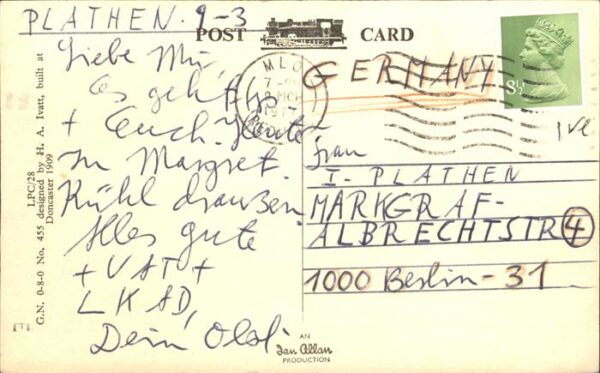 PLATHEN. 9-3
POST CARD
Liebe Mu,
Es geht
+ Euch. Heute
zu Margret.
Kühl draußen
Alles gute
+ VAT +
LKAD,
Dein Olaf.
MLO
GERMANY
8½
Frau
I- PLATHEN
MARKGRAF-
ALBRECHTSTR 4
1000 Berlin-31
G.N. 0-8-0 No. 455 designed by H. A. Ivatt, built at
Doncaster 1909
LPC/28
AN
Ian Allan
PRODUCTION